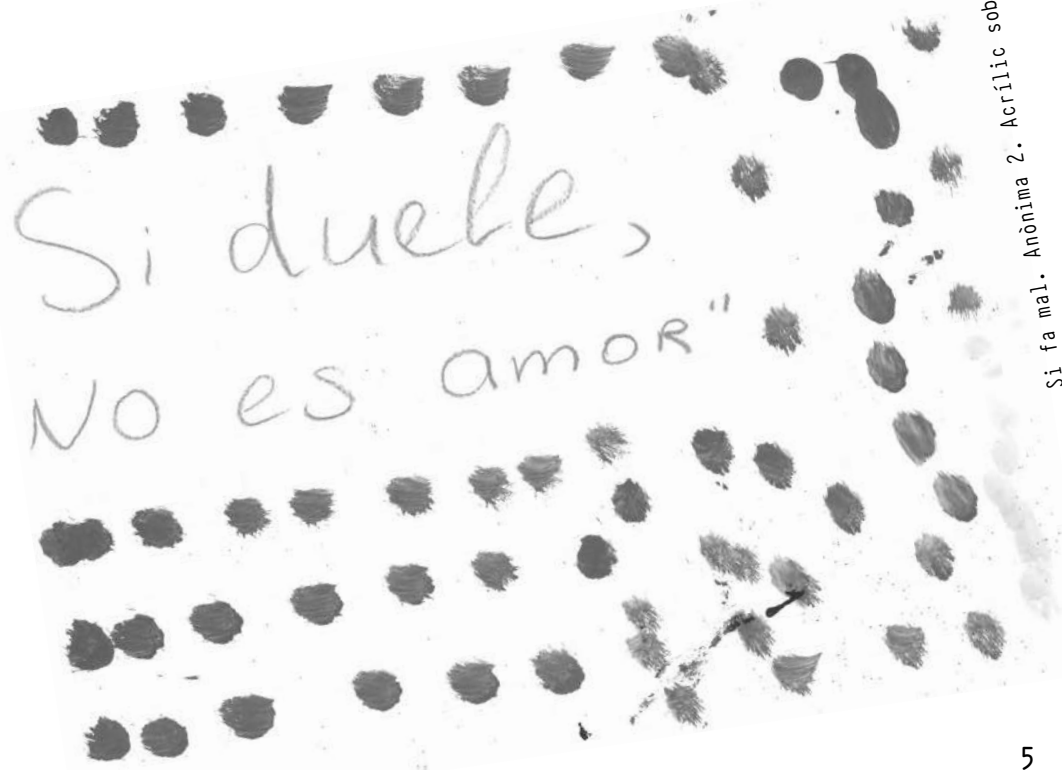 Si duele,
No es amor"
Si fa mal. Anònima 2. Acrílic sob
5